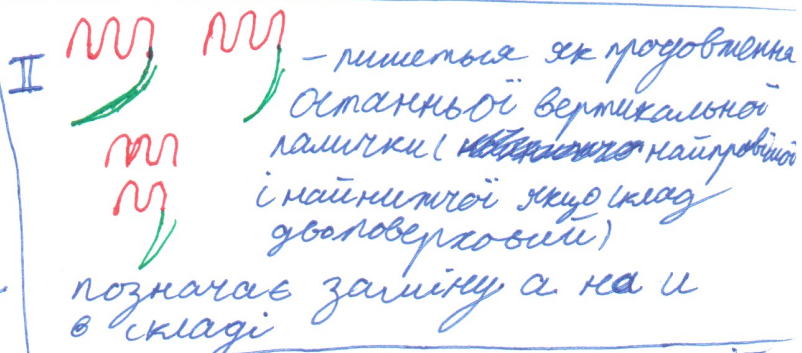 II
– пишеться як продовження
останньої вертикальної
палички ( найправішої
і найнижчої якщо склад
двоповерховий)
позначає заміну а на и
в складі